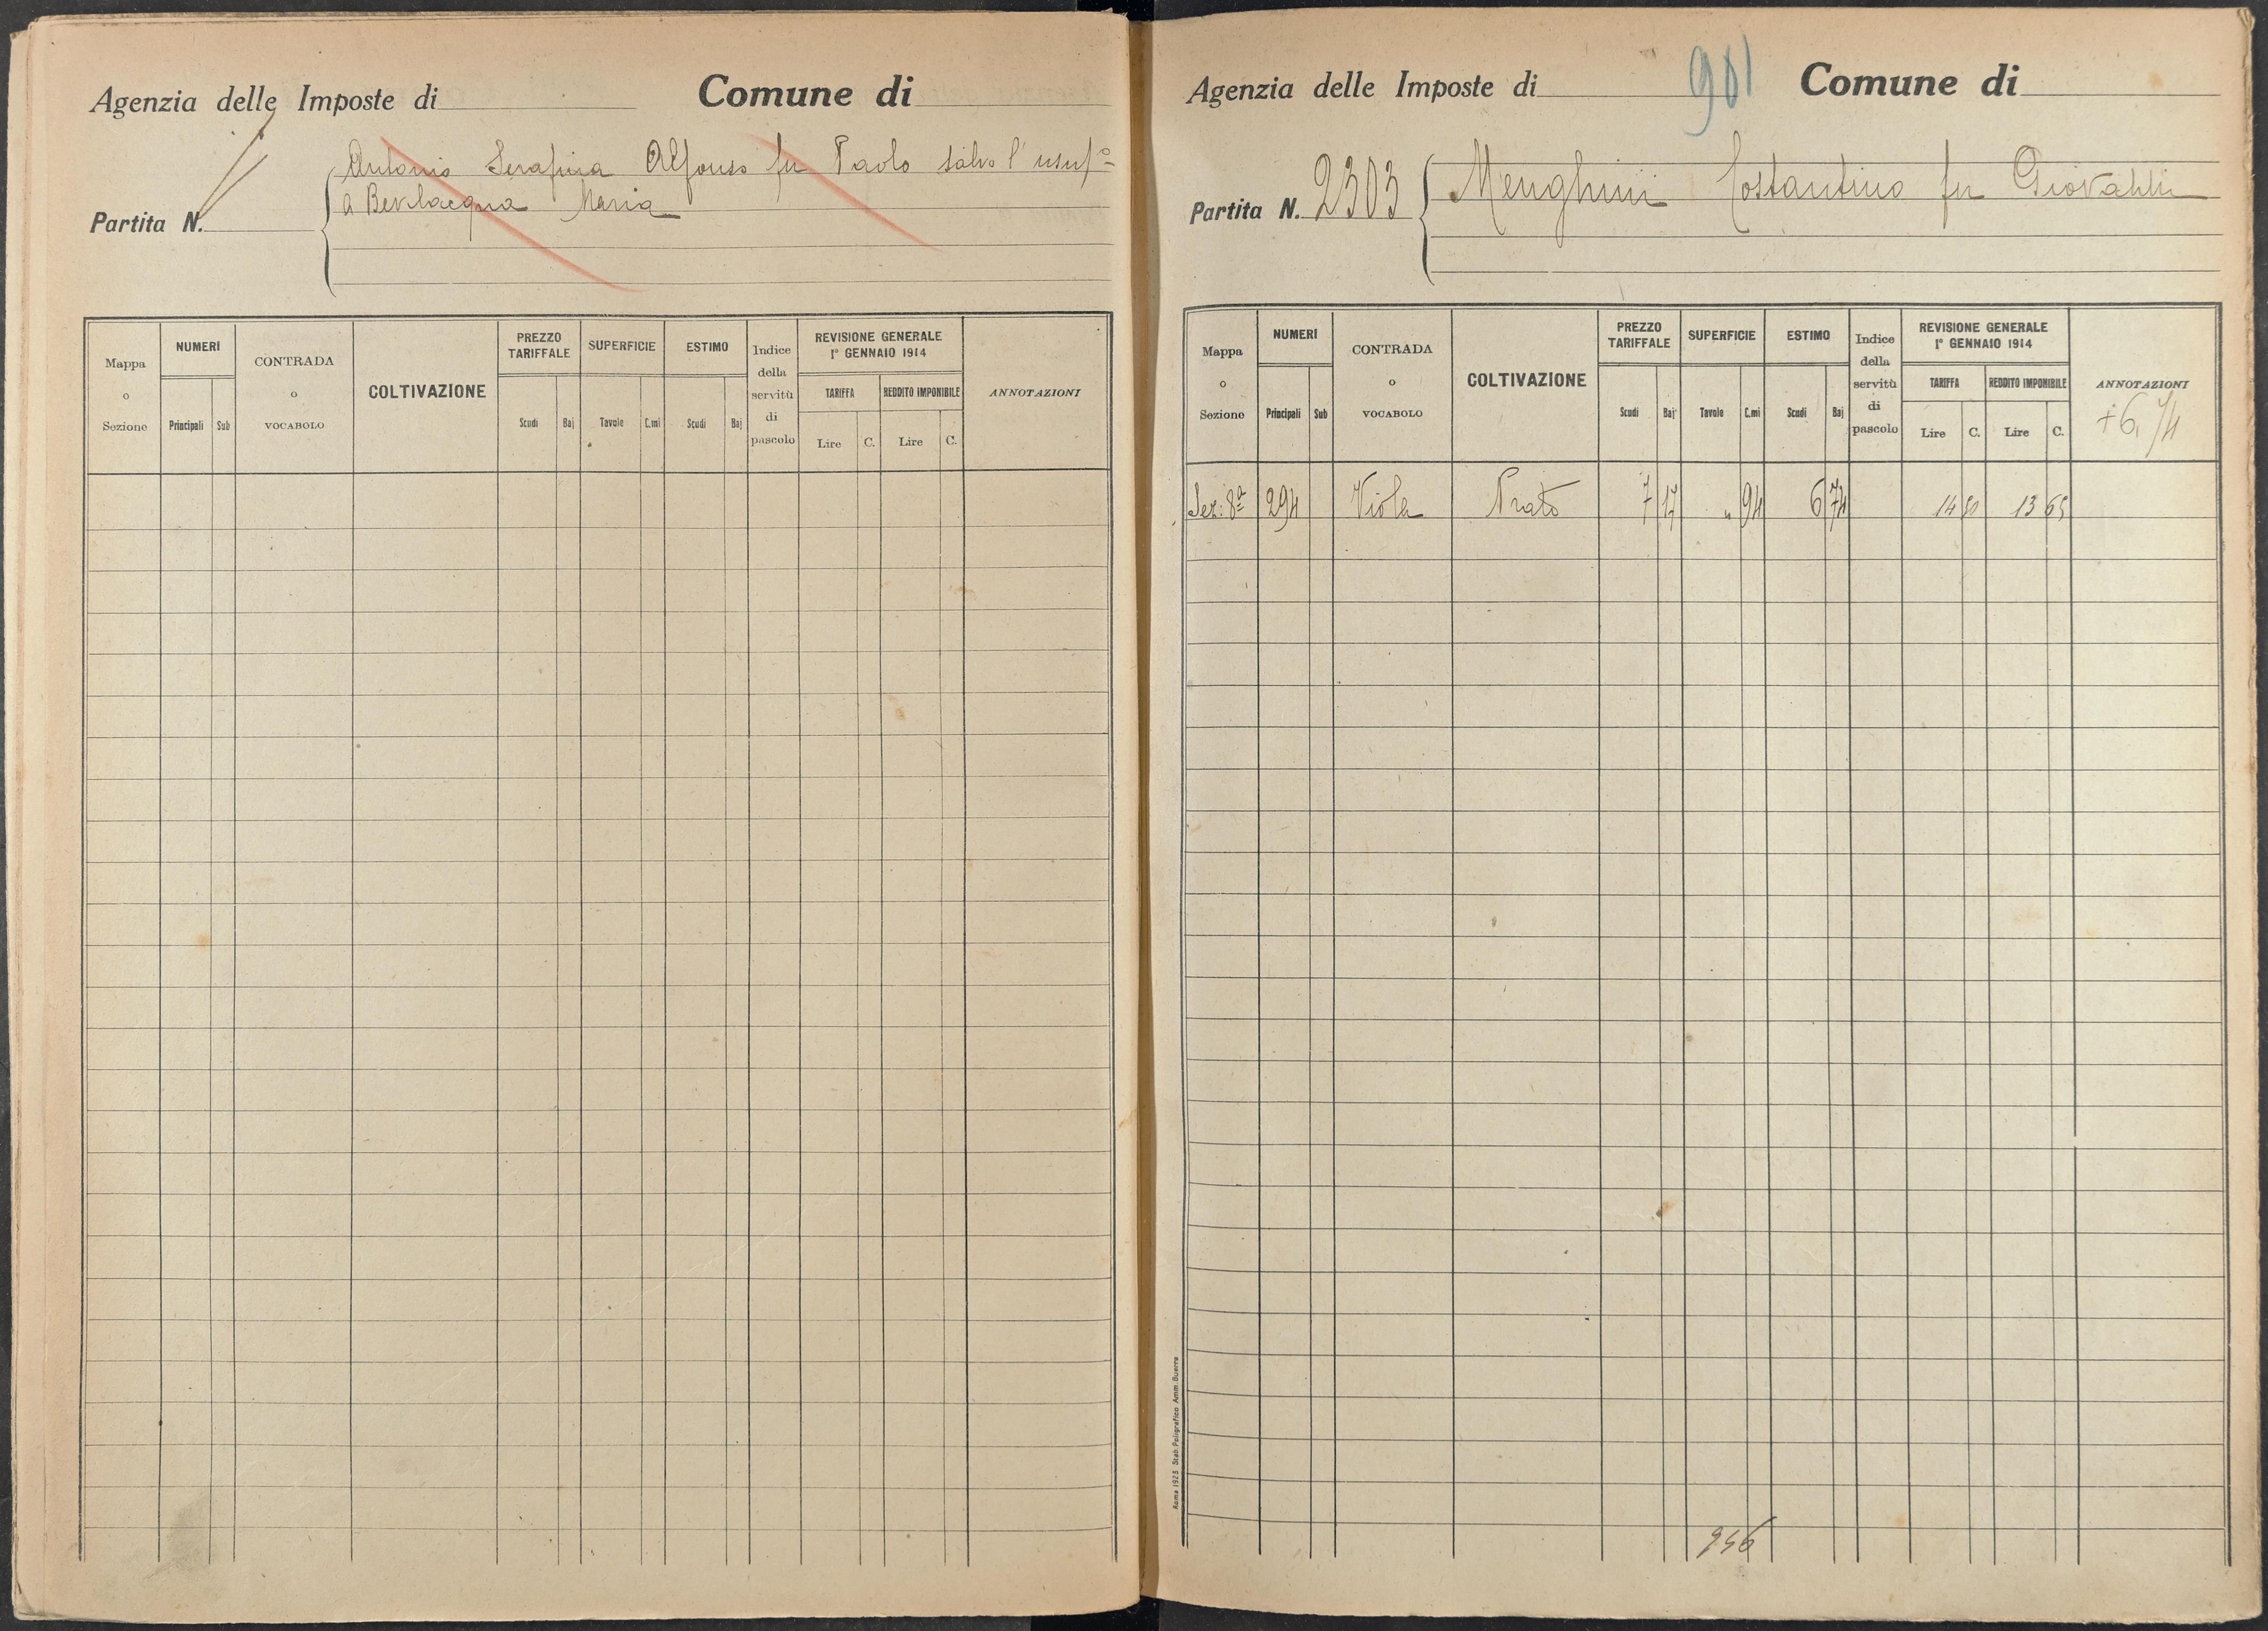 Agenzia delle Imposte di Comune di
Antonio Serafina Alfonso fu Paolo salvo l'usuf.º
a Bevilacqua Maria
Partita N.
Mappa o Sezione
NUMERI
Principali Sub
CONTRADA o VOCABOLO
COLTIVAZIONE
PREZZO TARIFFALE
Scudi Baj
SUPERFICIE
Tavole C.mi
ESTIMO
Scudi Baj
Indice della servitù di pascolo
REVISIONE GENERALE
1º GENNAIO 1914
TARIFFA
Lire C.
REDDITO IMPONIBILE
Lire C.
ANNOTAZIONI
901
Agenzia delle Imposte di Comune di
Partita N. 2303 Menghini Costantino fu Giovanni
Mappa o Sezione
NUMERI
Principali Sub
CONTRADA o VOCABOLO
COLTIVAZIONE
PREZZO TARIFFALE
Scudi Baj
SUPERFICIE
Tavole C.mi
ESTIMO
Scudi Baj
Indice della servitù di pascolo
REVISIONE GENERALE
1º GENNAIO 1914
TARIFFA
Lire C.
REDDITO IMPONIBILE
Lire C.
ANNOTAZIONI
+6,74
Sez: 8ª 294 Viola Prato 7 17 " 94 6 74 14 50 13 63
Roma 1925 Stab. Poligrafico Amm. Guerra
946